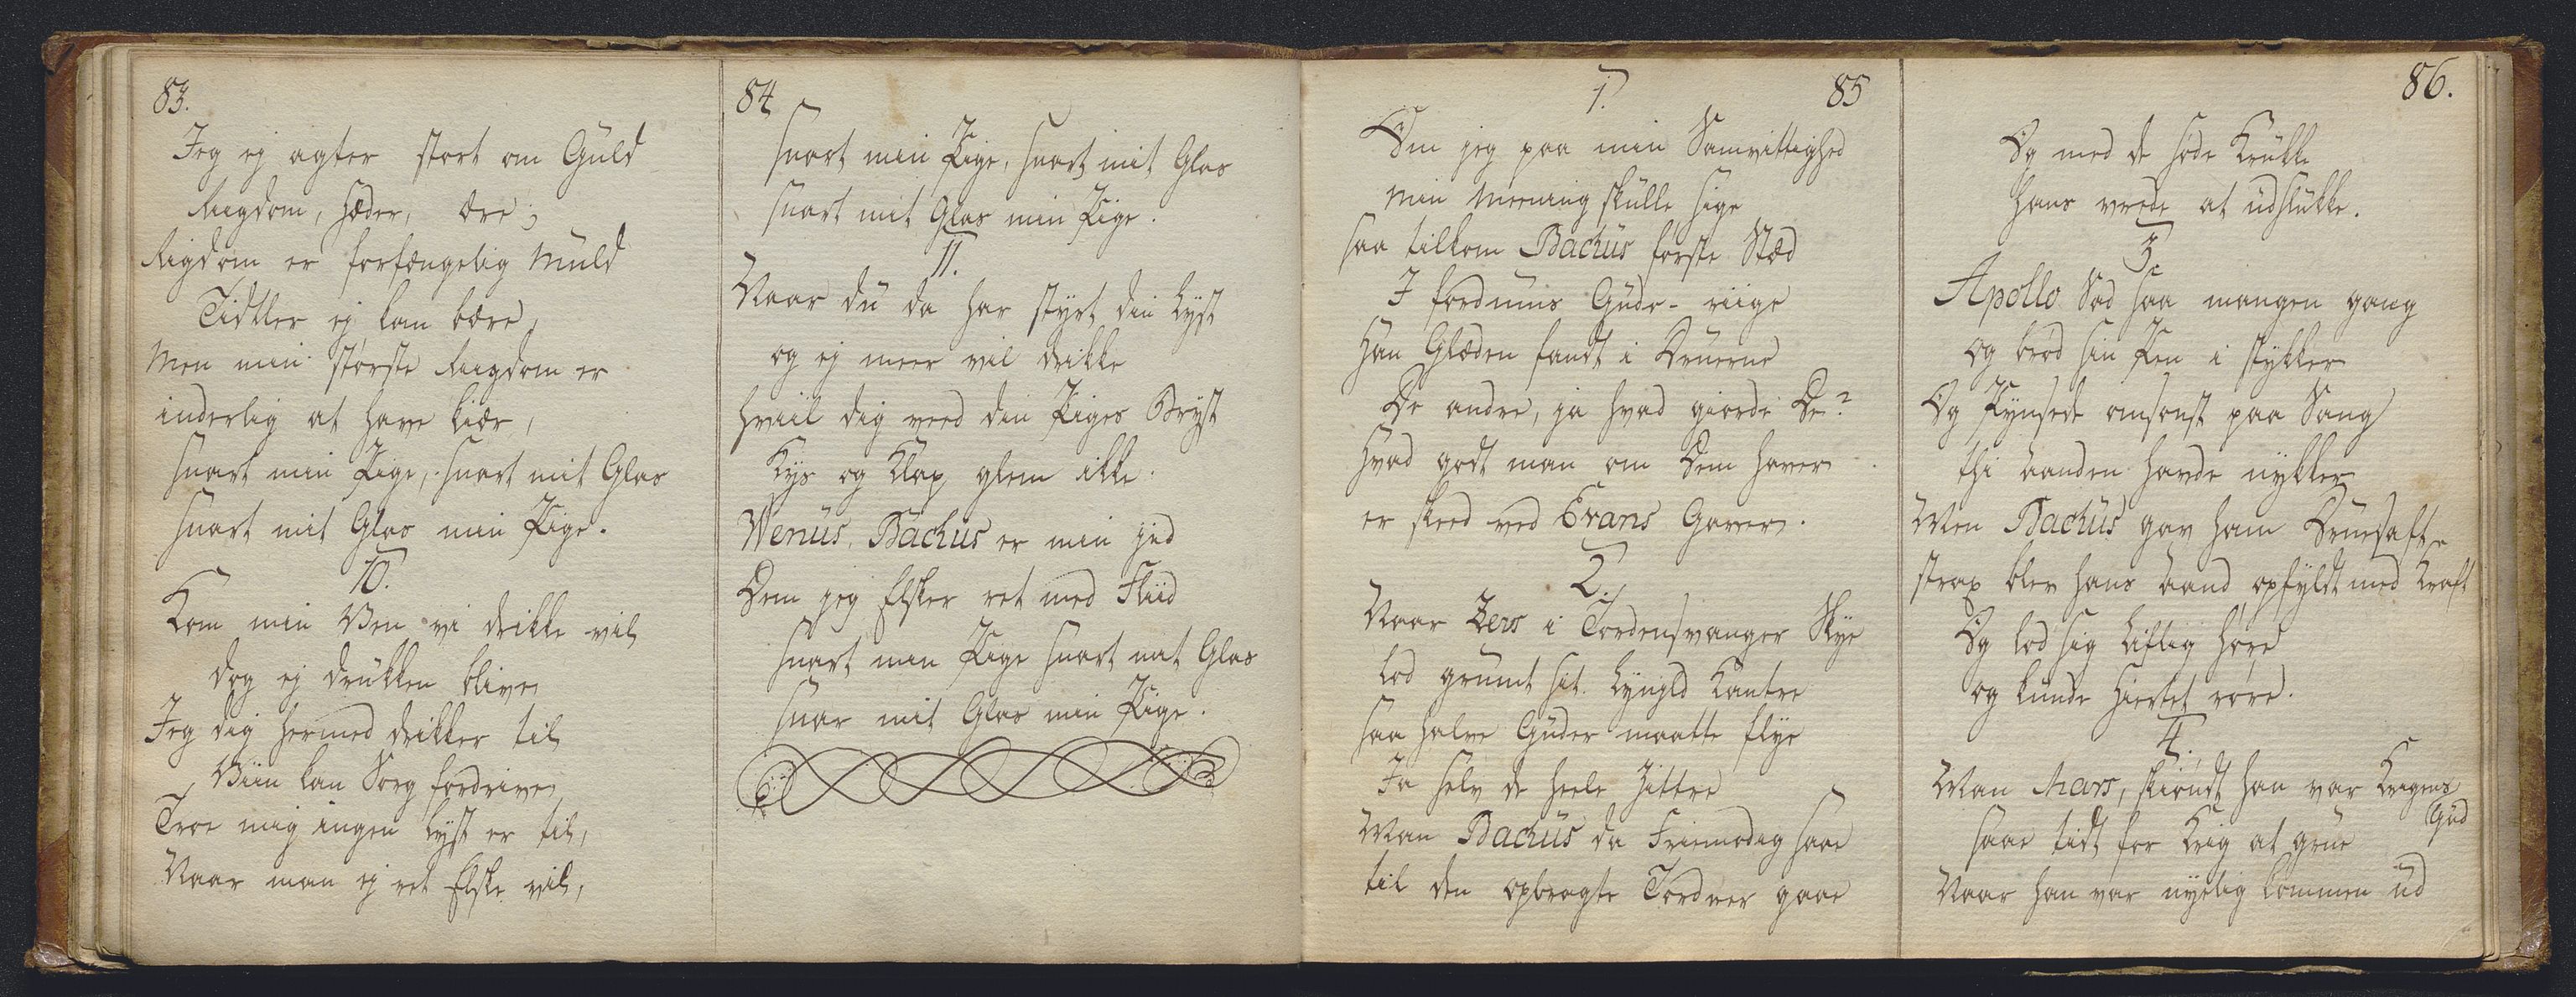 83.
Jeg ej agter stort om Guld
Riigdom, Hæder, ære;
Rigdom er forfængelig Muld
Tidtler ej kan bære,
Men min største Riigdom er
inderlig at have kiær,
snart min Pige, snart mit Glas
snart mit Glas min Pige.
10.
Kom min Ven vi drikke vil
dog ej drukken blive
Jeg dig hermed drikker til
Viin kan Sorg fordrive
Troe mig ingen Lyst er til,
Naar man ej ret Elske vil,
84
snart min Pige, snart mit Glas
snart mit Glas min Pige.
11.
Naar du da har styrt din Lyst
og ej meer vil drikke
hviil dig veed din Piges Bryst
Kys og Klap glem ikke.
Wenus, Bachus er min Jid
Dem jeg Elsker ret med Fliid
snart min Pige snart mit Glas
snar mit Glas min Pige.
85
1.
Om jeg paa min Samvittighed
min Meening skulle sige
saa tilkom Bachus første Stæd
I fordums Gude-riige
Han Glæden fandt i Druerne
De andre, ja hvad giorde De?
Hvad godt man om Dem haver
er skeed ved Evans Gaver.
2.
Naar Zevs i Tordensvanger Skye
lod grumt sit Lynild Kantre
saa halve Guder maatte flye
Ja selv de heele Zittre
Man Bachus da Friemodig saae
til den opbragte Tordner gaae
86.
Og med de søde Krukke
hans vrede at udslukke.
3.
Apollo Sad saa mangen gang
og brød sin Pen i stykker
Og Pynsede omsonst paa Sang
thi Aanden havde nykker
Men Bachus gav ham Druesaft
strax blev hans Aand opfyldt med Kraft
Og lod sig liflig høre
og kunde Hiertet røre.
4.
Man Mars, skiøndt han var Krigens
Gud
saae tidt for Krig at grue
Naar han var nyelig kommen ud